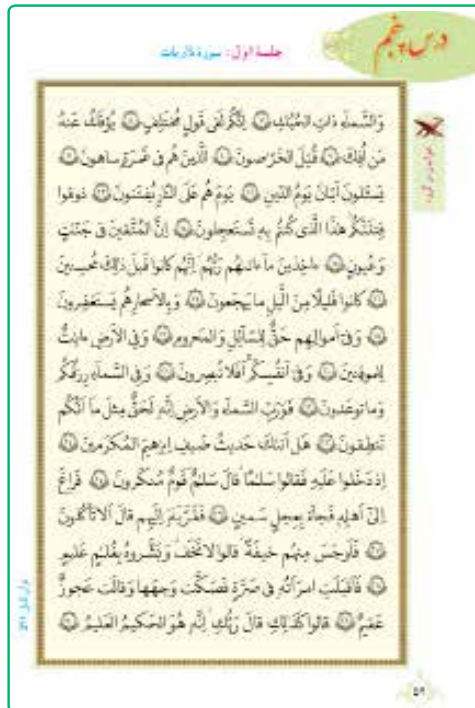 درس پنجم
جلسهٔ اوّل: سورهٔ ذاریات
وَالسَّماءِ ذاتِ الحُبُكِ ٧ اِنَّكُم لَفى قَولٍ مُختَلِفٍ ٨ يُؤفَكُ عَنهُ
مَن اُفِكَ ٩ قُتِلَ الخَرّاصونَ ١٠ اَلَّذينَ هُم فى غَمرَةٍ ساهونَ ١١
يَسـَٔلونَ اَيّانَ يَومُ الدّينِ ١٢ يَومَ هُم عَلَى النّارِ يُفتَنونَ ١٣ ذوقوا
فِتنَتَكُم هٰذَا الَّذى كُنتُم بِه تَستَعجِلونَ ١٤ اِنَّ المُتَّقينَ فى جَنّٰتٍ
وَ عُيونٍ ١٥ ءاخِذينَ ما ءاتاهُم رَبُّهُم اِنَّهُم كانوا قَبلَ ذٰلِكَ مُحسِنينَ
١٦ كانوا قَليلًا مِنَ الَّيلِ ما يَهجَعونَ ١٧ وَ بِالاَسحارِ هُم يَستَغفِرونَ
١٨ وَ فى اَموالِهِم حَقٌّ لِلسّائِلِ وَ المَحرومِ ١٩ وَ فِى الاَرضِ ءايٰتٌ
لِلموقِنينَ ٢٠ وَ فى اَنفُسِكُم اَفَلا تُبصِرونَ ٢١ وَ فِى السَّماءِ رِزقُكُم
وَ ما توعَدونَ ٢٢ فَوَرَبِّ السَّماءِ وَ الاَرضِ اِنَّه لَحَقٌّ مِثلَ ما اَنَّكُم
تَنطِقونَ ٢٣ هَل اَتىٰكَ حَديثُ ضَيفِ اِبرٰهيمَ المُكرَمينَ ٢٤
اِذ دَخَلوا عَلَيهِ فَقالوا سَلٰمًا قالَ سَلٰمٌ قَومٌ مُنكَرونَ ٢٥ فَراغَ
اِلىٰ اَهلِه فَجاءَ بِعِجلٍ سَمينٍ ٢٦ فَقَرَّبَه اِلَيهِم قالَ اَلا تَأكُلونَ
٢٧ فَاَوجَسَ مِنهُم خيفَةً قالوا لا تَخَف وَ بَشَّروهُ بِغُلٰمٍ عَليمٍ
٢٨ فَاَقبَلَتِ امرَاَتُه فى صَرَّةٍ فَصَكَّت وَجهَها وَ قالَت عَجوزٌ
عَقيمٌ ٢٩ قالوا كَذٰلِكِ قالَ رَبُّكِ اِنَّه هُوَ الحَكيمُ العَليمُ ٣٠